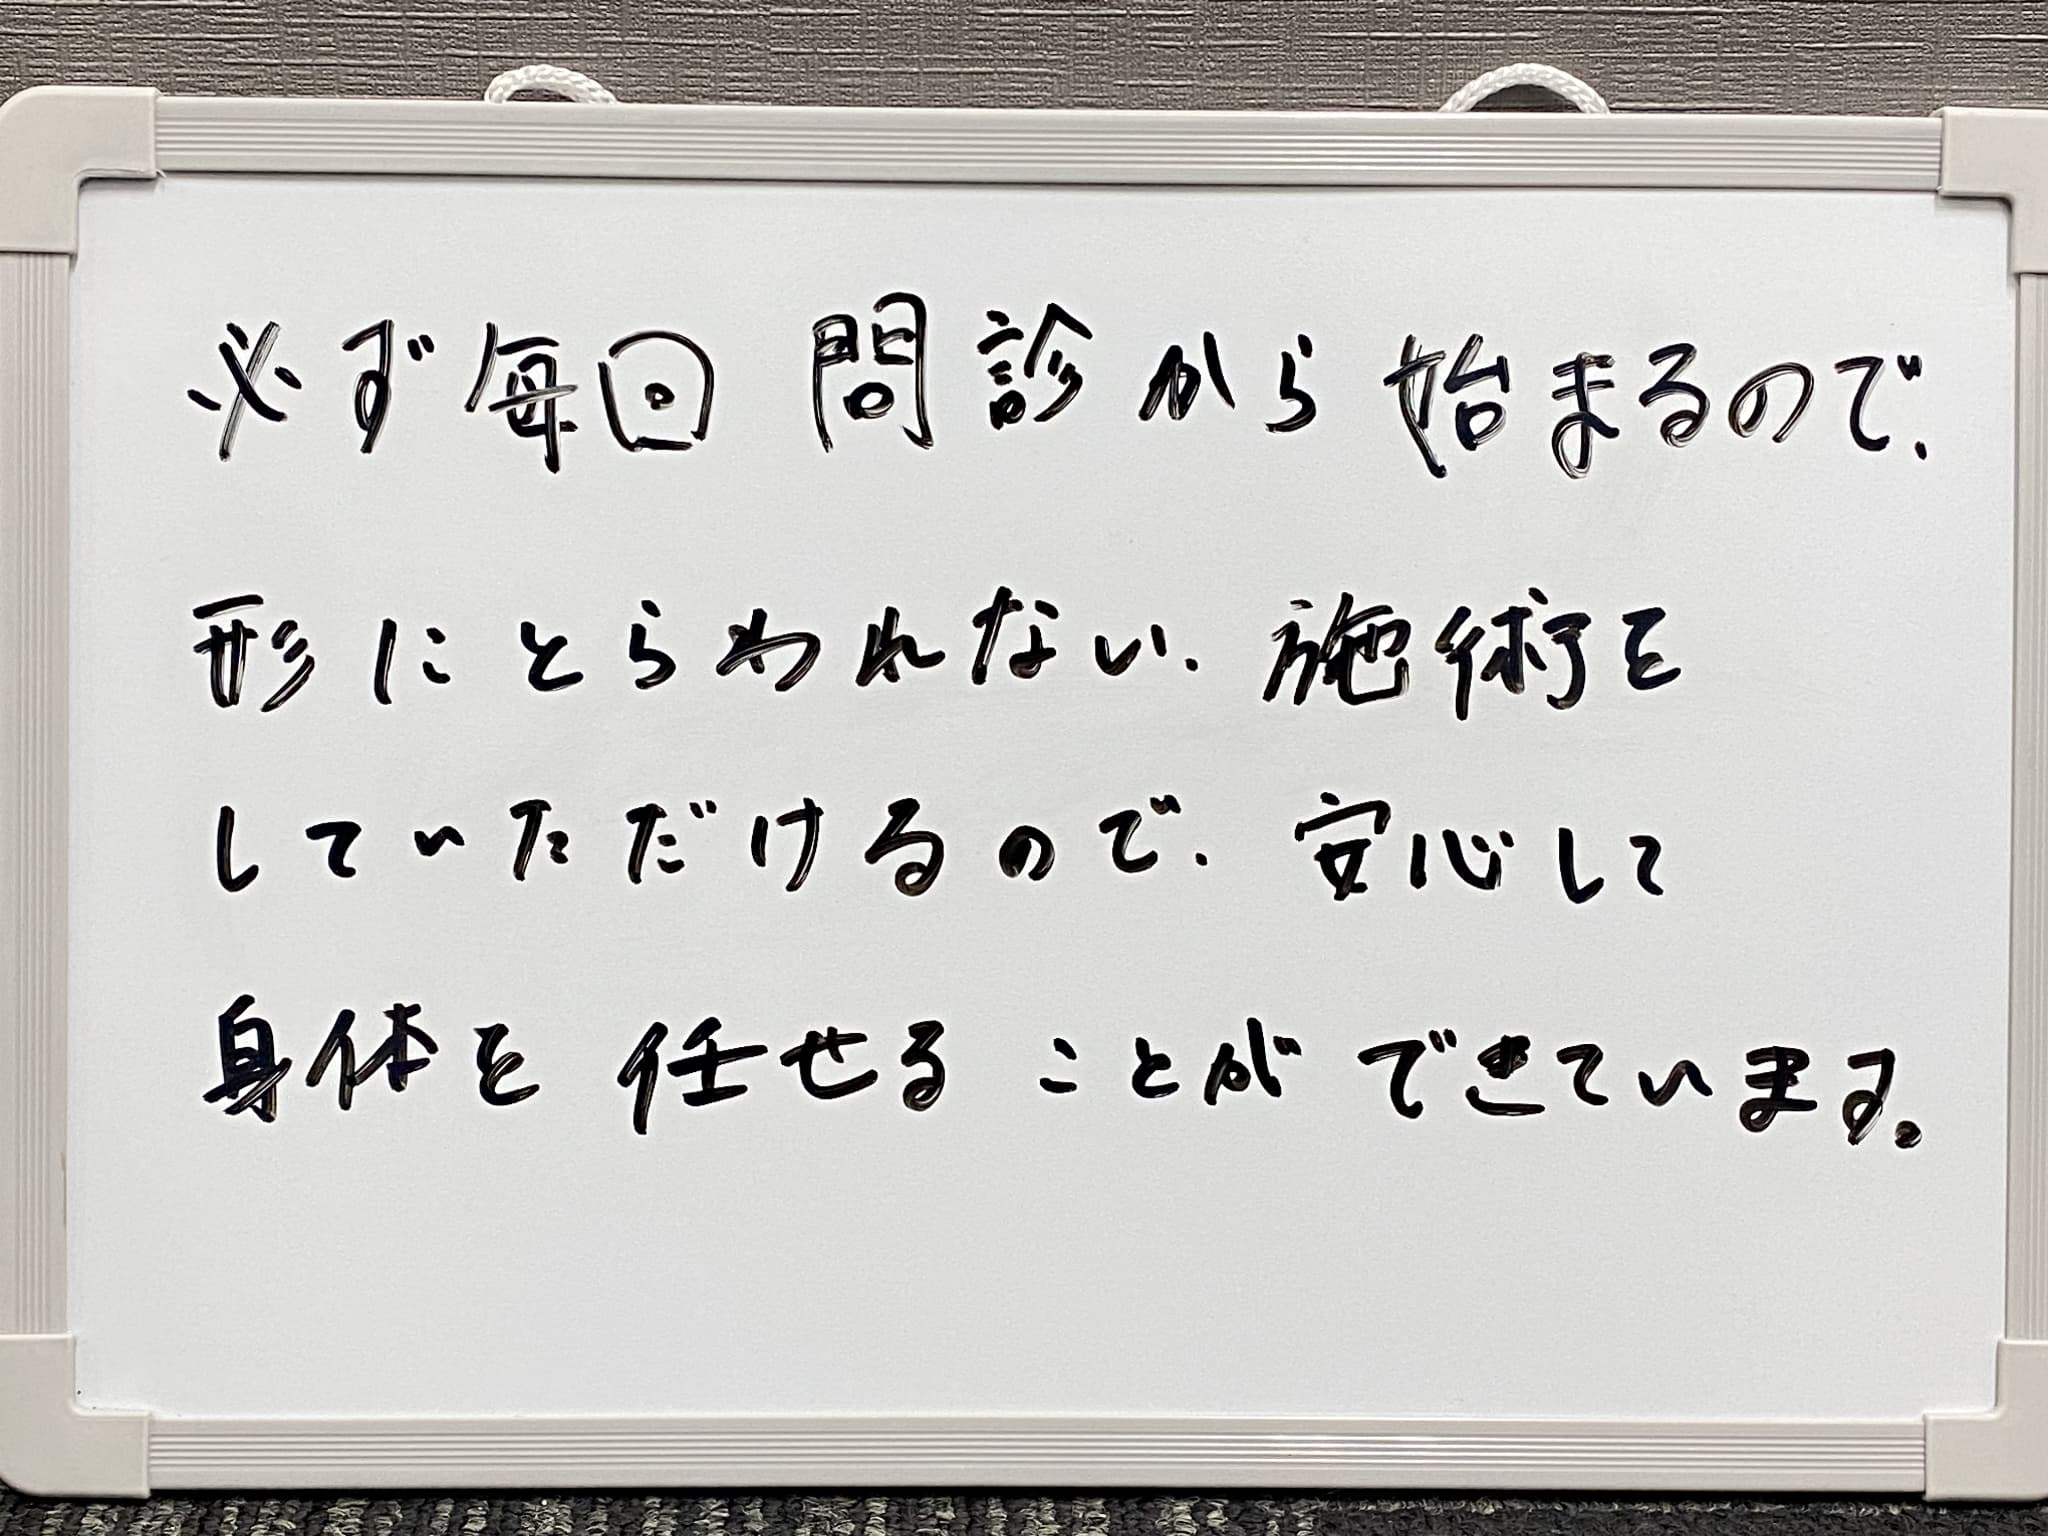 必ず毎回問診から始まるので、
形にとらわれない、施術を
していただけるので、安心して
身体を任せることができています。